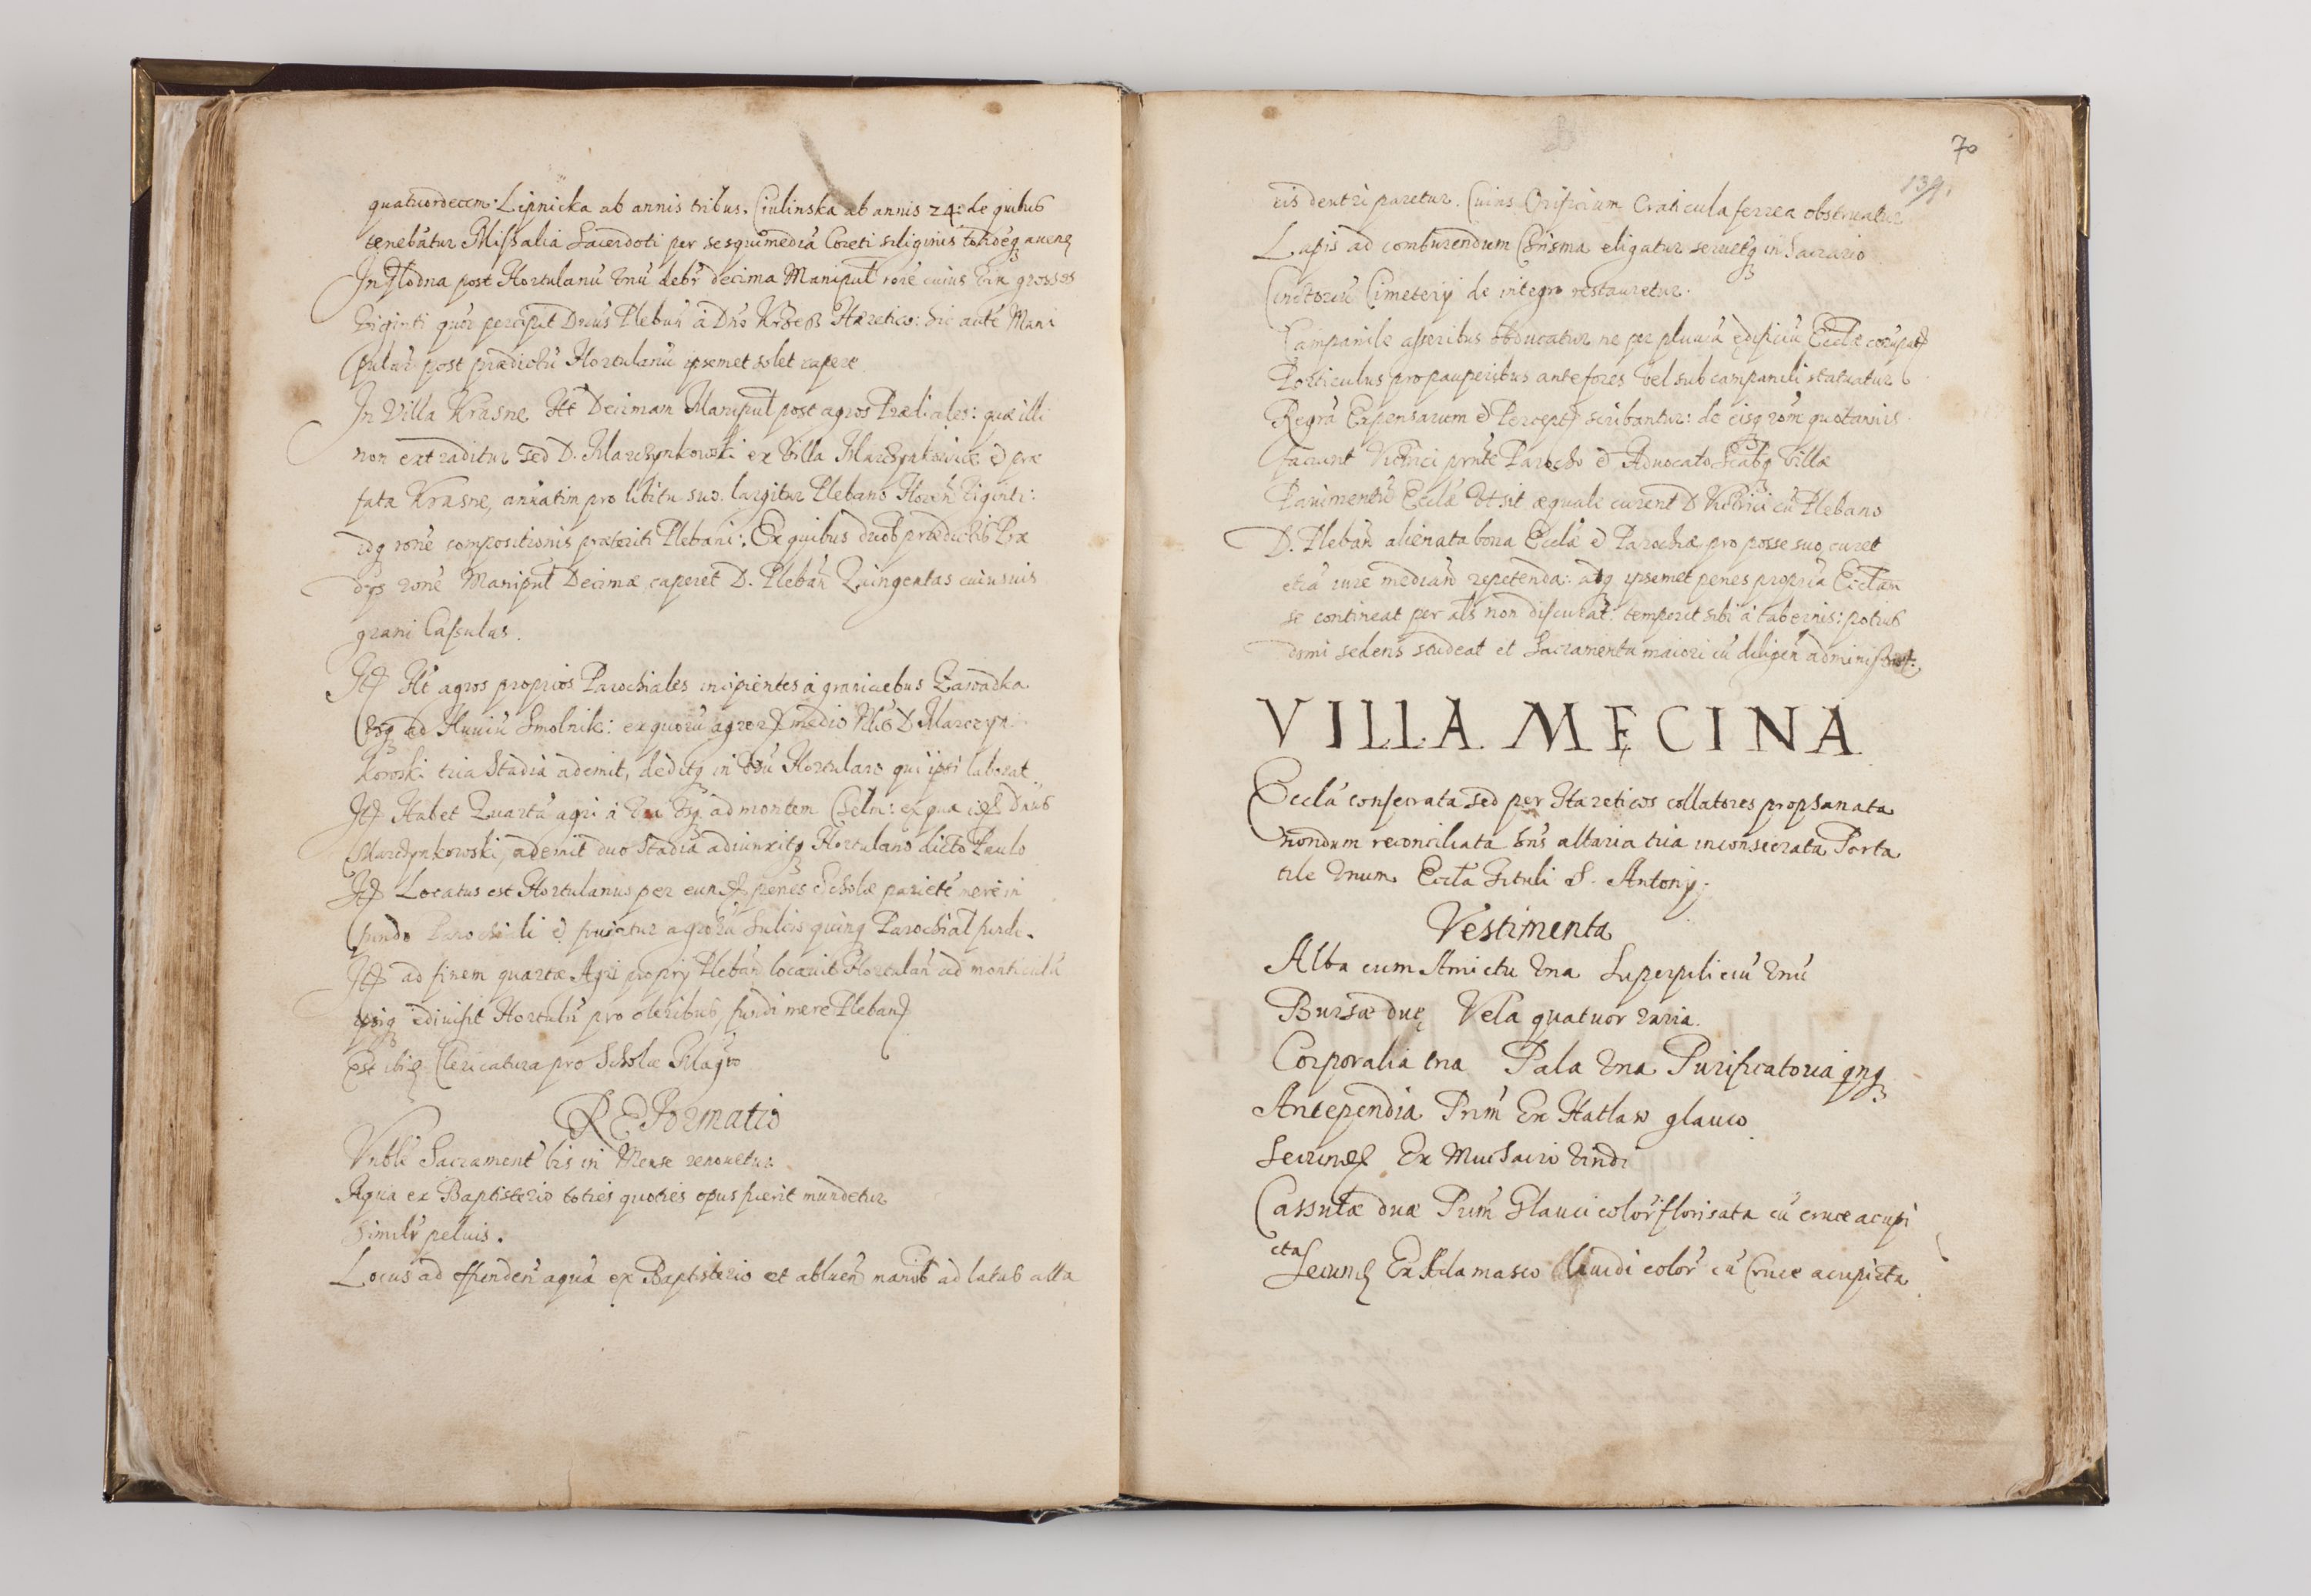 quatuordecem. Lipnicka ab annis tribus. Ciulinska ab annis 24: de quibus
tenebatur Missalia Sacerdoti per sesquimediā Coreti siliginis totidēq avenę
In Hodna post Hortulanū Unū debr decima Maniput rone cuius Vix grosses
Viginti quor percipit Dnus Plebun à Dno Heretico: hic autē Mani
pulur post prædictū Hortulanū ipsemet solet capere
In Villa Krasne Ht Decimam Maniput post agros Prædiales: quæ illi
non extraditur sed D. Marczynkowski ex Villa Marczynkowice & præ
fata Krasne, annatim pro libitu suo largitur Plebano Floren Viginti:
idq rone compositionis præteriti Plebani: Ex quibus duob prædictis Præ
dijs rone Maniput Decimæ caperet D. Pleban Quingentas cuiusuis
grani Cassulas.
Itē Ht agros proprios Parochiales incipientes à graniciebus Zawadka
Usq ad Fluuiū Smolnik: ex quorū agror medio D Marczyn
kowski tria Stadia ademit, deditq in Usū Hortulano qui ipsi laborat
Itē Habet Quartū agri à Via Usq ad montem Chelm: ex qua Dnus
Marczynkowski, ademit duo Stadia adiunxitq Hortulano dicto Paulo
Itē Locatus est Hortulanus per eund penes Scholæ parietē mere in
fundo Parochiali & fruiatur agrorū Sulcis quinq Parochial fundi.
Itē ad finem quartæ Agri proprij Pleban locavit Hortulan ad monticulū
ediuisit Hortulū pro oleribus, fundi mere Pleban
Est ibid Clericatura pro Scholæ Magro
REFormatio
Vnble Sacrament bis in Mense renouetur
Aqua ex Baptisterio toties quoties opus fuerit mundetur
similr peluis.
Locus ad effunden aquā ex Baptisterio et abluen manib ad latus alta
70
139.
ris dextri paretur. Cuius Orificium Craticula ferrea obstruatur
Lapis ad comburendum Chrisma eligatur serueturq in Sacrario
Cinctoriū Cimeterij de integro restauretur.
Campanile asseribus obducatur ne per pluuia ędificiū Ecclæ
Porticulus pro pauperibus ante fores Vel sub campanili statuatur
Regra Expensarum & Percept scribantur: de eisq rōm quotannis
faciant Vitrici prnte Parocho & Aduocato Scabq Villæ
Pauimentū Ecclæ Ut sit æquale curent D Vitrici cū Plebano
D. Pleban alienata bona Ecclæ & Parochiæ pro posse suo curet
etiā iure median repetenda: atq ipsemet penes propriā Ecclam
se contineat per als non discurat: temperet sibi à tabernis: potius
domi sedens studeat et Sacramenta maiori cū diligen administret.
VILLA MĘCINA
Eccla consecrata sed per Hæreticos collatores prophanata
nondum reconciliata hns altaria tria inconsecrata Porta
tile Unum Eccla Tituli S. Antonij.
Vestimenta
Alba cum Amictu Una Superpeliciū Unū
Bursæ duę Vela quatuor varia.
Corporalia tria Pala Una Purificatoria qnq
Antependia Prim Ex Hatlaw glauco
Secund Ex Muchairio Viridi
Cassulæ duæ Prim Glauci color florisata cū cruce acupi
cta
Secund Ex Adamasco liuidi color cū Cruce acupicta